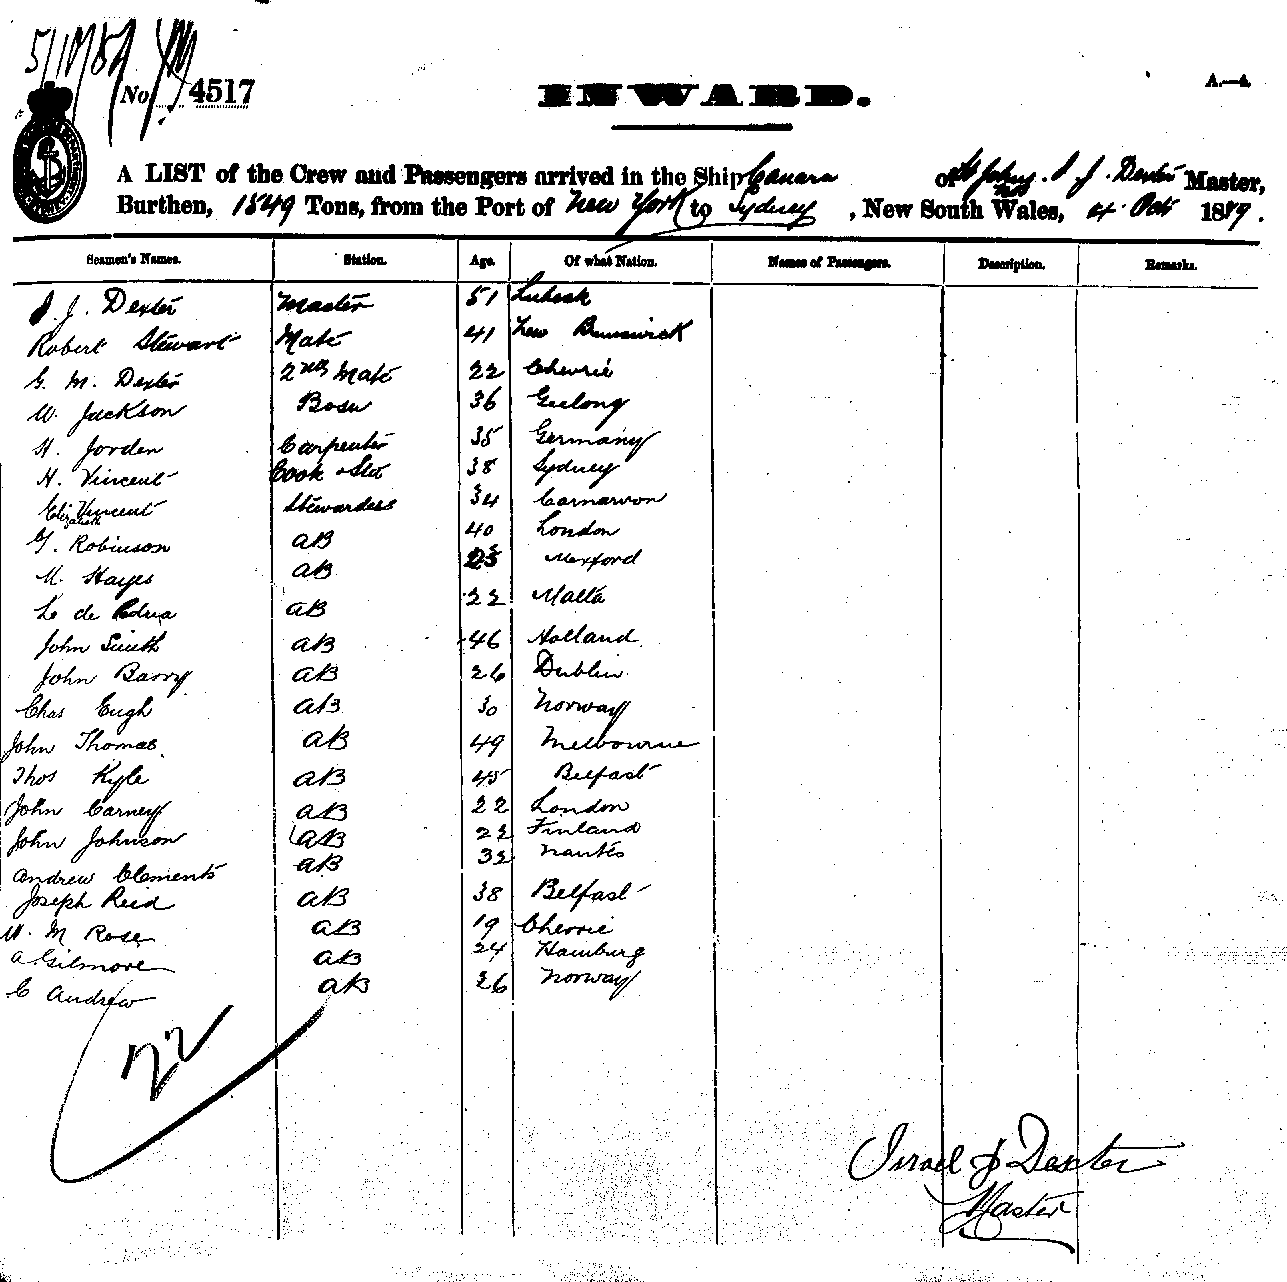 No. 4517
INWARD.
A.—A
A LIST of the Crew and Passengers arrived in the Ship Canara of St Johns NB. I. J. Dexter Master,
Burthen, 1549 Tons, from the Port of New York to Sydney, New South Wales, 4 Oct 1889.
Seamen's Names. Station. Age. Of what Nation. Names of Passengers. Description. Remarks.
I. J. Dexter Master 51
Robert Stewart Mate 41 New Brunswick
G. M. Dexter 2nd Mate 22 Cheverie
W. Jackson Bosn 36 Geelong
H. Jorden Carpenter 35 Germany
H. Vincent Cook & Std 38 Sydney
Elizabeth Vincent Stewardess 34 Carnarvon
G. Robinson AB 40 London
M. Hayes AB 23
Le de AB 22 Malta
John Smith AB 46 Holland
John Barry AB 26 Dublin
Chas Eugh AB 30 Norway
John Thomas AB 49 Melbourne
Thos Kyle AB 45 Belfast
John Carney AB 22 London
John Johnson AB 22 Finland
Andrew Clements AB 32 Nantes
Joseph Reid AB 38 Belfast
W. M Rose AB 19 Cheverie
A Gilmore AB 24 Hamburg
C Andrew AB 26 Norway
22
Israel J Dexter
Master